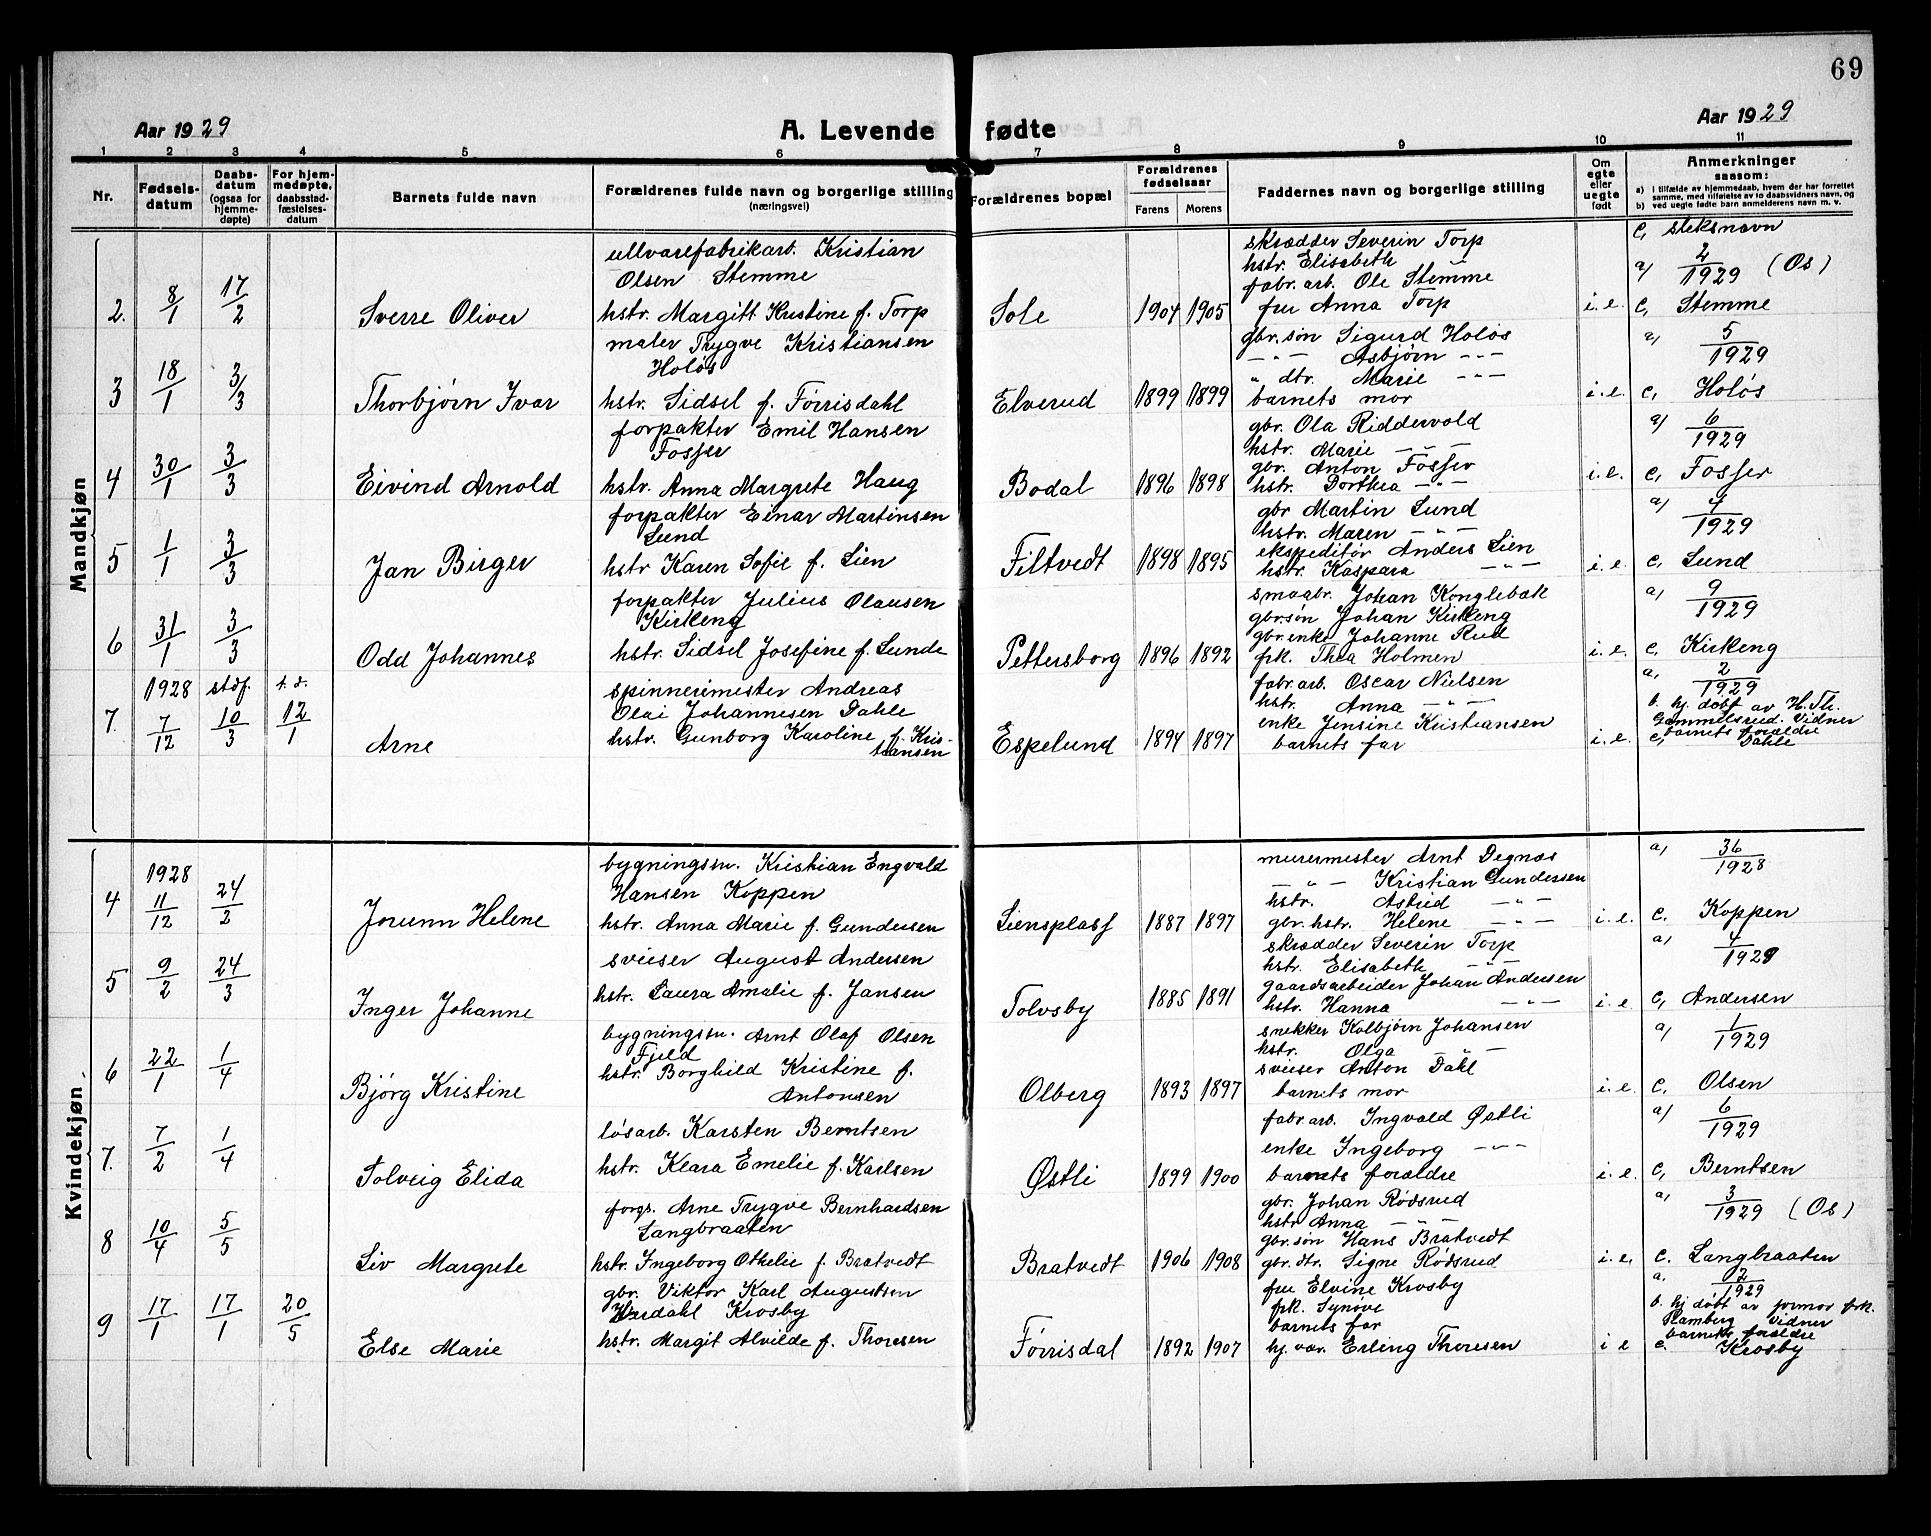 69
Aar 1929
A. Levende fødte
Aar 1929
1 2 3 4 5 6 7 8 9 10 11
Nr.
Fødsels-
datum
Daabs-
datum
(ogsaa for
hjemme-
døpte)
For hjem-
medøpte,
daabsstad-
fæstelses-
datum
Barnets fulde navn
Forældrenes fulde navn og borgerlige stilling
(næringsvei)
Forældrenes bopæl
Forældrenes
fødselsaar
Farens Morens
Faddernes navn og borgerlige stilling
Om
egte
eller
uegte
født
Anmerkninger
saasom:
a) i tilfælde av hjemmedaab, hvem der har forrettet
samme, med tilføielse av to daabsvidners navn, og
b) ved uegte fødte barn anmelderens navn m. v.
Mandkjøn
2. 8/1 17/2
Sverre Oliver
ullvarefabrikarb. Kristian
Olsen Stemme
hstr. Margitt Kristine f. Torp
Sole 1904 1905
skrædder Severin Torp
hstr. Elisabeth
fabr. arb. Ole Stemme
fru Anna Torp
i. e.
c, sleksnavn
a) 2/1929 (Os)
c, Stemme
3 18/1 3/3
Thorbjørn Ivar
maler Trygve Kristiansen
Holøs
hstr. Sidsel f. Førrisdahl
Elverud 1899 1899
gbr. søn Sigurd Holøs
-"- Asbjørn -"-
" dtr. Marie -"-
barnets mor
i. e.
a) 5/1929
c, Holøs
4 30/1 3/3
Eivind Arnold
forpakter Emil Hansen
Fosser
hstr. Anna Margrete Haug
Bodal 1896 1898
gbr. Ola Riddervold
hstr. Marie -"-
gbr. Anton Fosser
hstr. Dorthea -"-
i. e.
a) 6/1929
c, Fosser
5 1/1 3/3
Jan Birger
forpakter Einar Martinsen
Lund
hstr Karen Sofie f. Lien
Filtvedt 1898 1895
gbr Martin Lund
hstr. Maren -"-
ekspeditør Anders Lien
hstr. Kaspara -"-
i. e.
a) 4/1929
c, Lund
6 31/1 3/3
Odd Johannes
forpakter Julius Olausen
Kirkeng
hstr. Sidsel Josefine f. Lunde
Pettersborg 1896 1892
smaabr. Johan Konglebæk
gbr.søn Johan Kirkeng
gbr.enke Johanne Rud
frk. Thea Holmen
i. e.
a) 9/1929
c, Kirkeng
7. 1928 7/12 stdf. 10/3 t. d. 12/1
Arne
spinnerimester Andreas
Olai Johannesen Dahle
hstr. Gunborg Karoline f. Kris-
tiansen
Espelund 1894 1897
fabr. arb. Oscar Nielsen
hstr. Anna -"-
enke Jensine Kristiansen
barnets far
i. e.
a, 2/1929
b. hj. døbt av H. Th.
Gammelsrud. Vidner
barnets forældre
c, Dahle
Kvindekjøn
4 1928 11/12 24/2
Jorunn Helene
bygningssn. Kristian Engvald
Hansen Koppen
hstr. Anna Marie f. Gundersen
Liensplass 1887 1897
murermester Arnt Degnæs
-"- Kristian Gundersen
hstr. Astrid -"-
gbr. hstr. Helene -"-
i. e.
a) 36/1928
c. Koppen
5 9/2 24/3
Inger Johanne
sveiser August Andersen
hstr. Laura Amalie f. Jansen
Tolvsby 1885 1891
skrædder Severin Torp
hstr. Elisabeth -"-
gaardsarbeider Johan Andersen
hstr. Hanna -"-
i. e
a) 4/1929
c, Andersen
6 22/1 1/4
Bjørg Kristine
bygningssn. Arnt Olaf Olsen
Fjeld
hstr. Borghild Kristine f.
Antonsen
Olberg 1893 1897
snekker Kolbjørn Johansen
hstr. Olga -"-
sveiser Anton Dahl
barnets mor
i. e.
a) 1/1929
c, Olsen
7. 7/2 1/4
Solveig Elida
løsarb. Karsten Berntsen
hstr. Klara Emelie f. Karlsen
Østli 1899 1900
fabr. arb. Ingvald Østli
enke Ingeborg -"-
barnets forældre
i. e
a) 6/1929
c, Berntsen
8 10/4 5/5
Liv Margrete
forgs. Arne Trygve Bernhardsen
Langbraaten
hstr. Ingeborg Othelie f. Bratvedt
Bratvedt 1906 1908
gbr. Johan Rødsrud
hstr Anna -"-
gbr. søn Hans Bratvedt
gbr. dtr. Signe Rødsrud
i. e,
a, 3/1929 (Os)
c. Langbraaten
9 17/1 17/1 20/5
Else Marie
gbr. Viktor Karl Augustsen
Krosby
hstr. Margit Alvilde f. Thoresen
Førrisdal 1892 1907
fru Elvine Krosby
frk. Synøve
barnets far
hj. var. Erling Thoresen
i e
a. 2/1929
b. hj døbt av jormor frk.
Flamberg Vidner
barnets forældre
c. Krosby